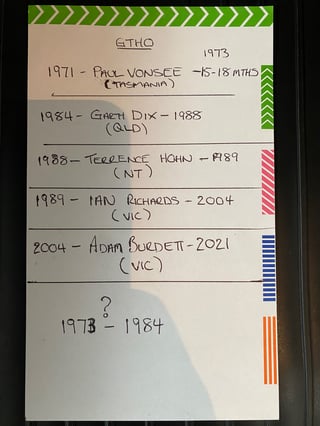 GTHO
1973
1971 - PAUL VONSEE - 15-18 MTHS
(TASMANIA)
1984 - GARTH DIX - 1988
(QLD)
1988 - TERRENCE HOHN - 1989
(NT)
1989 - IAN RICHARDS - 2004
(VIC)
2004 - ADAM BURDETT - 2021
(VIC)
?
1973 - 1984